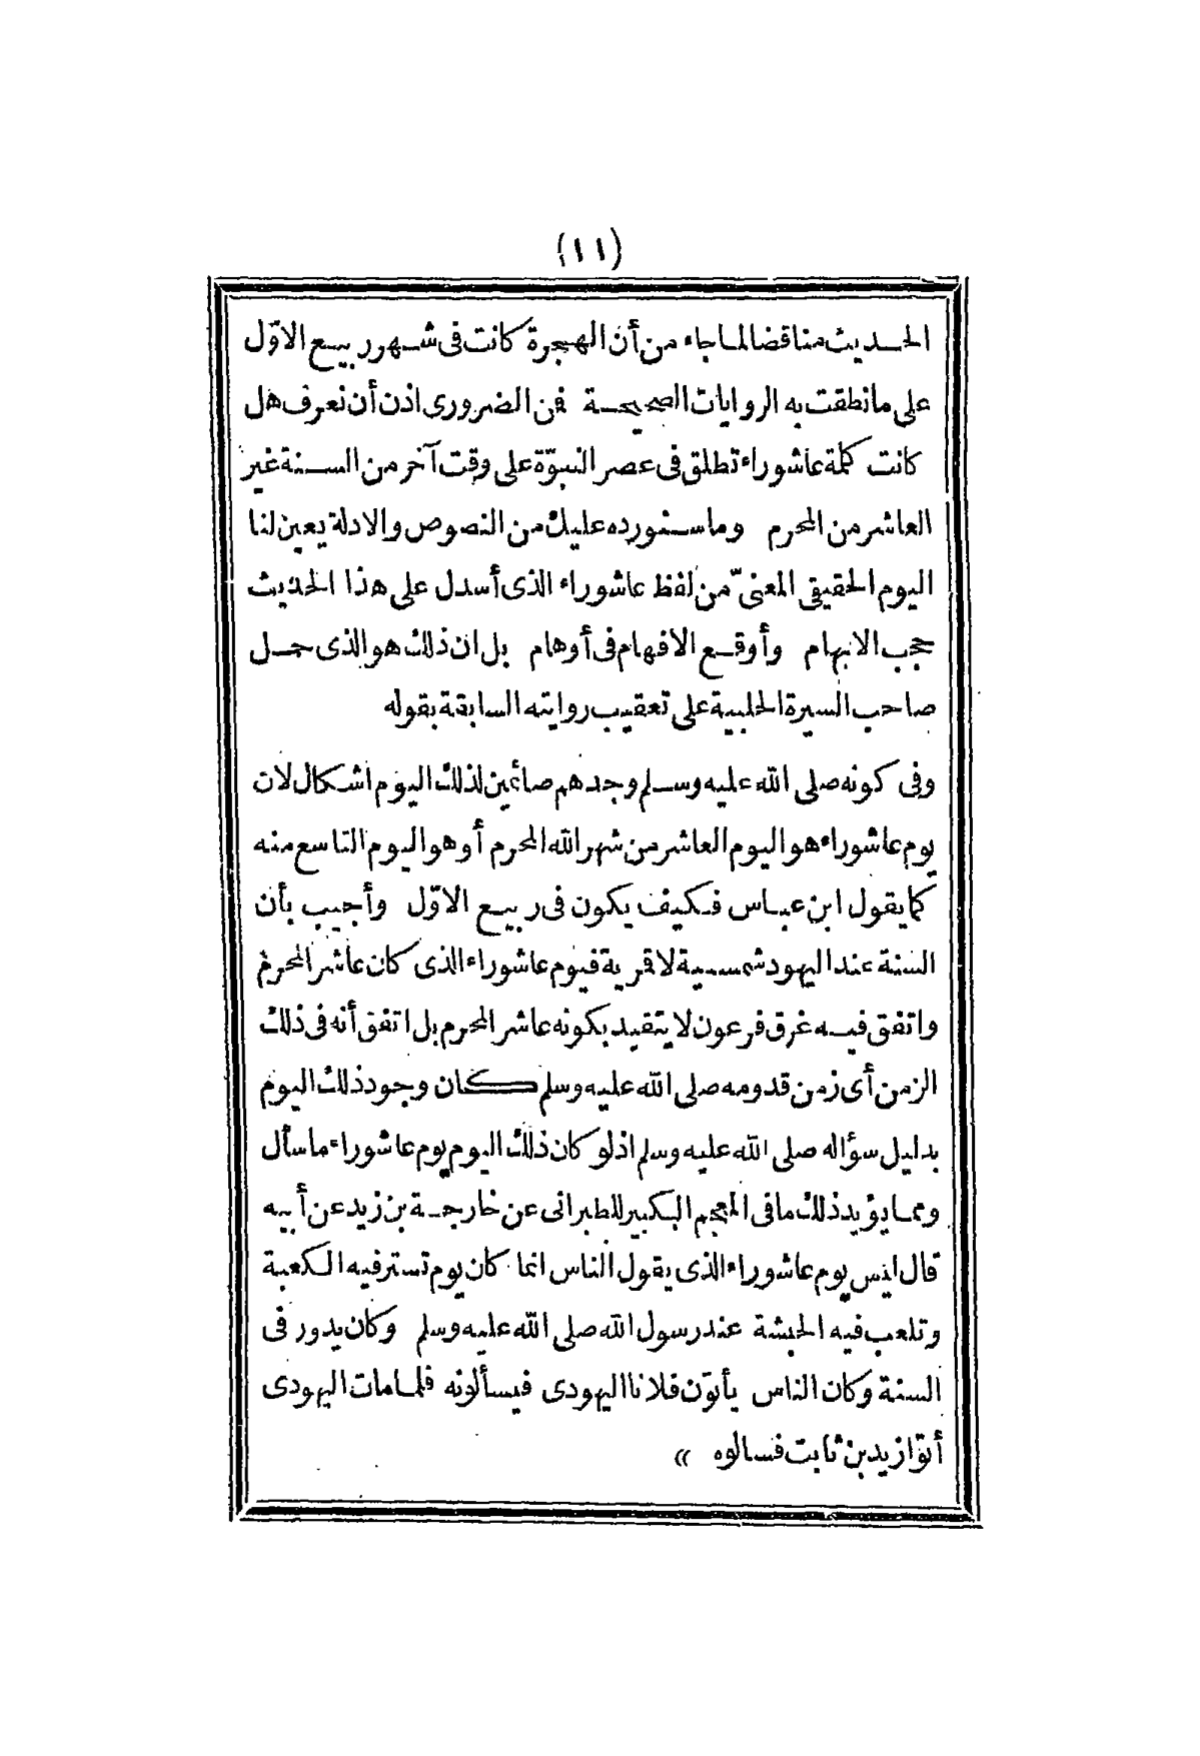 (١١)
الحديث مناقضا لما جاء من أن الهجرة كانت فى شهر ربيع الاوّل
على ما نطقت به الروايات الصحيحة فمن الضرورى اذن أن نعرف هل
كانت كلمة عاشوراء تطلق فى عصر النبوّة على وقت آخر من السنة غير
العاشر من المحرم وما سنورده عليك من النصوص والادلة يعين لنا
اليوم الحقيقى المعنىّ من لفظ عاشوراء الذى أسدل على هذا الحديث
حجب الابهام وأوقع الافهام فى أوهام بل ان ذلك هو الذى حمل
صاحب السيرة الحلبية على تعقيب روايته السابقة بقوله
وفى كونه صلى الله عليه وسلم وجدهم صائمين لذلك اليوم اشكال لان
يوم عاشوراء هو اليوم العاشر من شهر الله المحرم أو هو اليوم التاسع منه
كما يقول ابن عباس فكيف يكون فى ربيع الاوّل وأجيب بأن
السنة عند اليهود شمسية لا قمرية فيوم عاشوراء الذى كان عاشر المحرم
واتفق فيه غرق فرعون لا يتقيد بكونه عاشر المحرم بل اتفق أنه فى ذلك
الزمن أى زمن قدومه صلى الله عليه وسلم كان وجود ذلك اليوم
بدليل سؤاله صلى الله عليه وسلم اذ لو كان ذلك اليوم يوم عاشوراء ما سأل
ومما يؤيد ذلك ما فى المعجم الكبير للطبرانى عن خارجة بن زيد عن أبيه
قال ليس يوم عاشوراء الذى يقول الناس انما كان يوم تستر فيه الكعبة
وتلعب فيه الحبشة عند رسول الله صلى الله عليه وسلم وكان يدور فى
السنة وكان الناس يأتون فلانا اليهودى فيسألونه فلما مات اليهودى
أتوا زيد بن ثابت فسالوه »